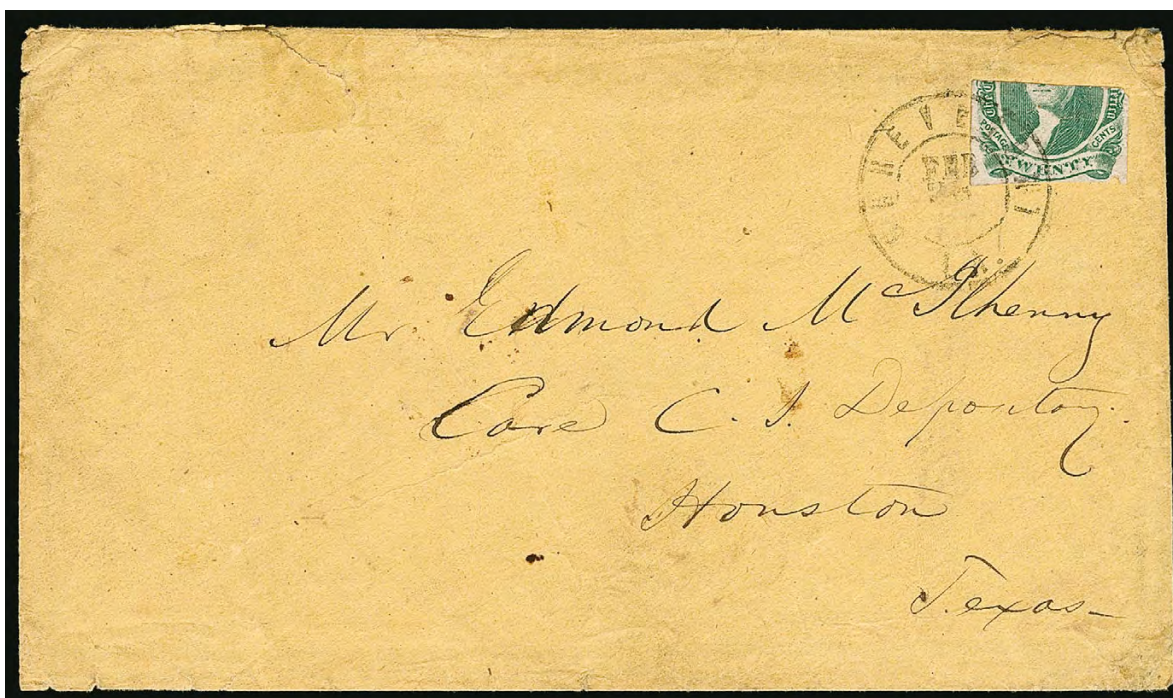 POSTAGE CENTS
TWENTY
FEB
Mr. Edmond McIlhenny
Care C. S. Depository.
Houston
Texas